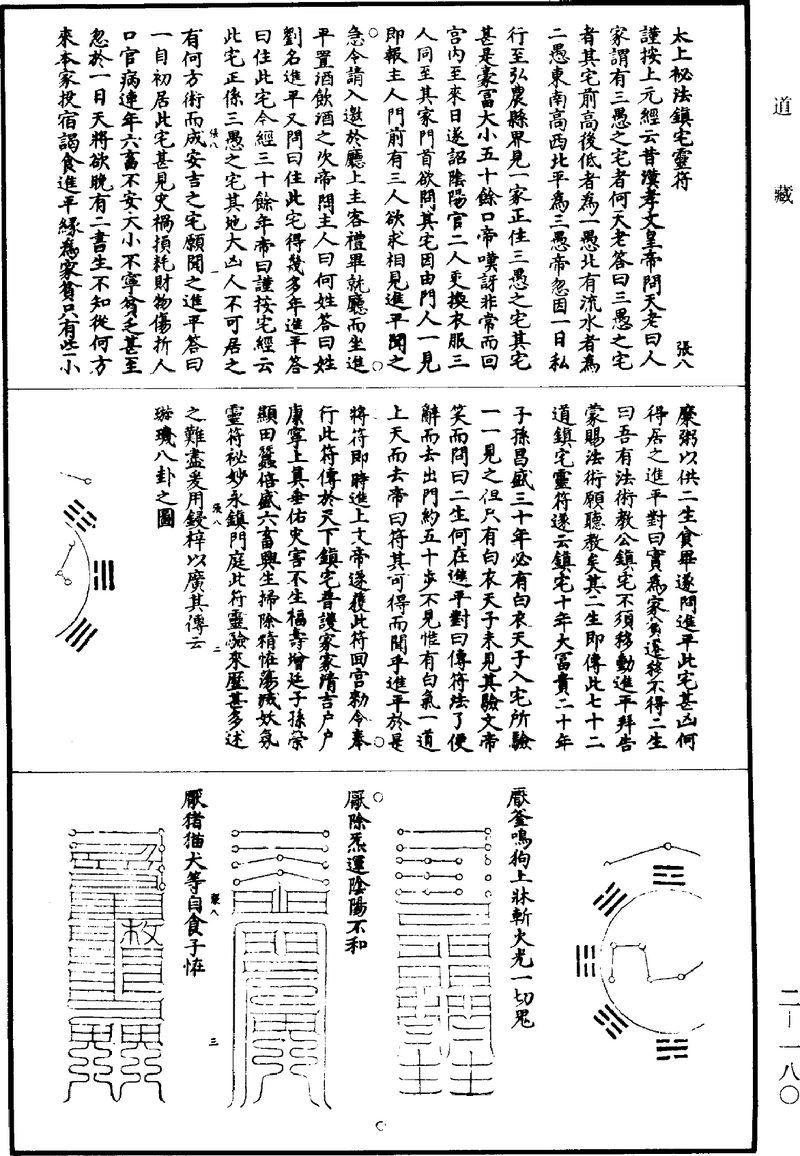 道藏
太上秘法鎮宅靈符
張八
謹按上元經云昔漢孝文皇帝問天老曰人
家謂有三愚之宅者何天老答曰三愚之宅
者其宅前高後低者為一愚北有流水者為
二愚東南高西北平為三愚帝忽因一日私
行至弘農縣界見一家正住三愚之宅其宅
甚是豪富大小五十餘口帝嘆訝非常而回
宮內至來日遂詔陰陽官二人更換衣服三
人同至其家門首欲問其宅因由門人一見
即報主人門前有三人欲求相見進平聞之
急令請入邀於廳上主客禮畢就廳而坐進
平置酒飲酒之次帝問主人曰何姓答曰姓
劉名進平又問曰住此宅得幾多年進平答
曰住此宅今經三十餘年帝曰謹按宅經云
此宅正係三愚之宅其地大凶人不可居之
張八
一
有何方術而成安吉之宅願聞之進平答曰
一自初居此宅甚見災禍損耗財物傷折人
口官病連年六畜不安大小不寧貧乏甚至
忽於一日天將欲晚有二書生不知從何方
來本家投宿謁食進平緣為家貧只有些小
糜粥以供二生食畢遂問進平此宅甚凶何
得居之進平對曰實為家貧遷移不得二生
曰吾有法術教公鎮宅不須移動進平拜告
蒙賜法術願聽教矣其二生即傳此七十二
道鎮宅靈符遂云鎮宅十年大富貴二十年
子孫昌盛三十年必有白衣天子入宅所驗
一一見之但只有白衣天子未見其驗文帝
笑而問曰二生何在進平對曰傳符法了便
辭而去出門約五十步不見惟有白氣一道
上天而去帝曰符其可得而聞乎進平於是
將符即時進上文帝遂獲此符回宮勅令奉
行此符傳於天下鎮宅普護家家清吉户户
康寧上真垂佑災害不生福壽增延子孫榮
顯田蠶倍盛六畜興生掃除精怪蕩滅妖氛
靈符祕妙永鎮門庭此符靈驗來歷甚多述
張八
二
之難盡爰用鋟梓以廣其傳云
璇璣八卦之圖
厭釜鳴狗上牀斬火光一切鬼
厭除炁運陰陽不和
張八
三
厭猪猫犬等自食子怪
二—一八〇